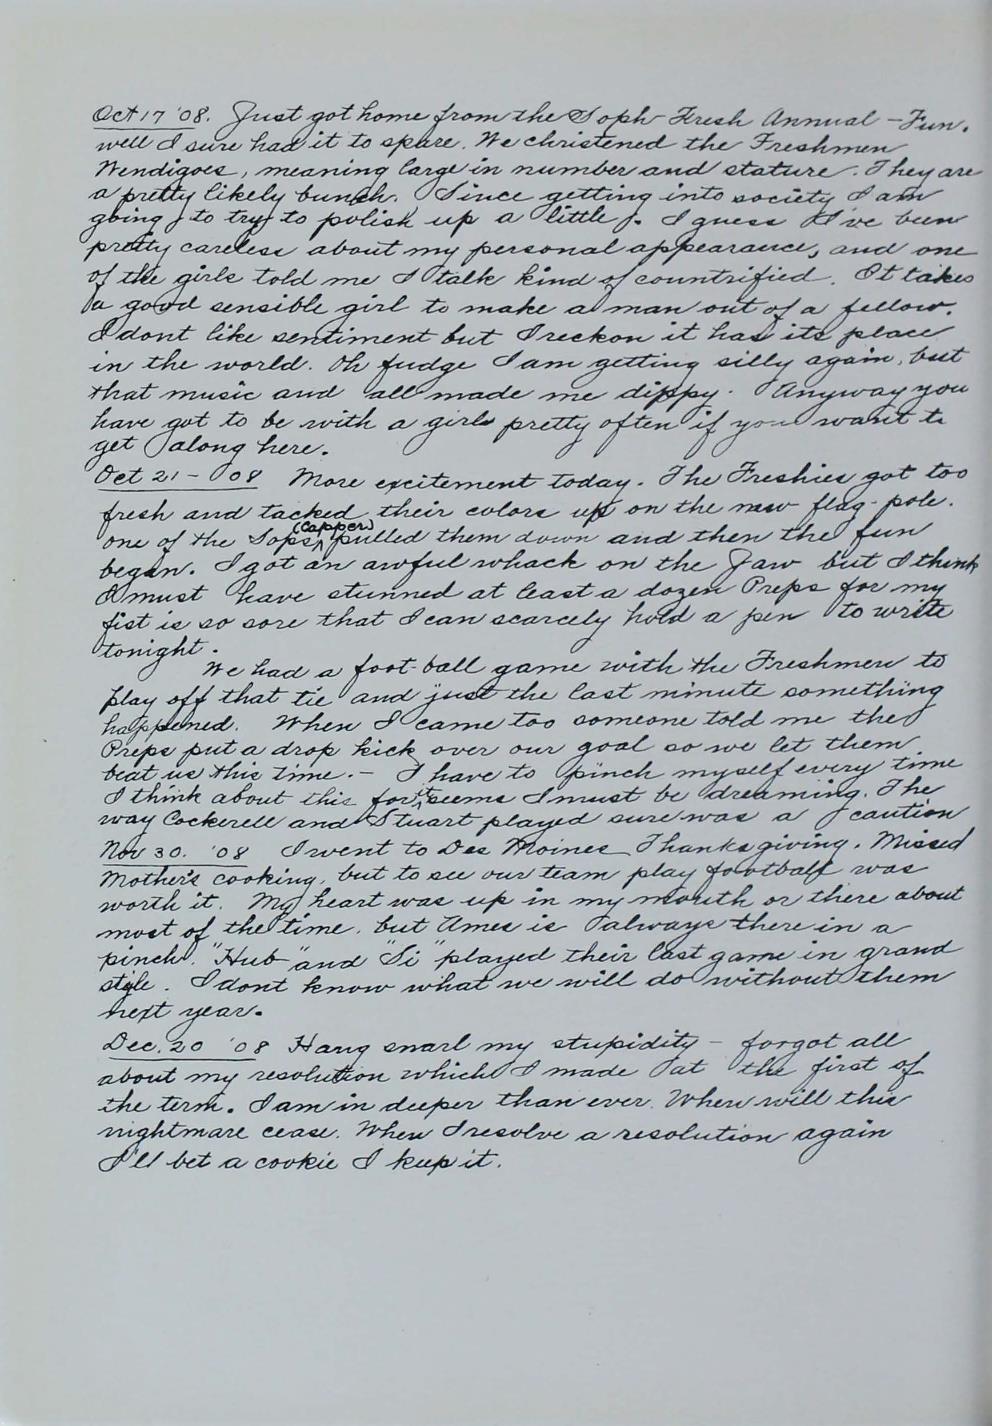 Oct 17 '08. Just got home from the Soph-Fresh Annual - Fun.
well I sure had it to spare. We christened the Freshmen
Wendigoes, meaning large in number and stature. They are
a pretty likely bunch. Since getting into society I am
going to try to polish up a little. I guess I've been
pretty careless about my personal appearance, and one
of the girls told me I talk kind of countrified. It takes
a good sensible girl to make a man out of a fellow.
I dont like sentiment but I reckon it has its place
in the world. Oh fudge I am getting silly again, but
that music and all made me dippy. Anyway you
have got to be with a girl pretty often if you want to
get along here.
Oct 21 - 08 More excitement today. The Freshies got too
fresh and tacked their colors up on the new flag-pole.
one of the Sops (Capper) pulled them down and then the fun
began. I got an awful whack on the Jaw but I think
I must have stunned at least a dozen Preps for my
fist is so sore that I can scarcely hold a pen to write
tonight.
We had a foot-ball game with the Freshmen to
play off that tie and just the last minute something
happened. When I came too someone told me the
Preps put a drop kick over our goal so we let them
beat us this time. - I have to pinch myself every time
I think about this for it seems I must be dreaming. The
way Cockerell and Stuart played sure was a caution
Nov 30. '08 I went to Des Moines Thanksgiving. Missed
Mother's cooking, but to see our team play football was
worth it. My heart was up in my mouth or there about
most of the time, but Ames is always there in a
pinch. "Hub" and "Si" played their last game in grand
style. I dont know what we will do without them
next year.
Dec. 20 '08 Hang snarl my stupidity - forgot all
about my resolution which I made at the first of
the term. I am in deeper than ever. When will this
nightmare cease. When I resolve a resolution again
I'll bet a cookie I keep it.